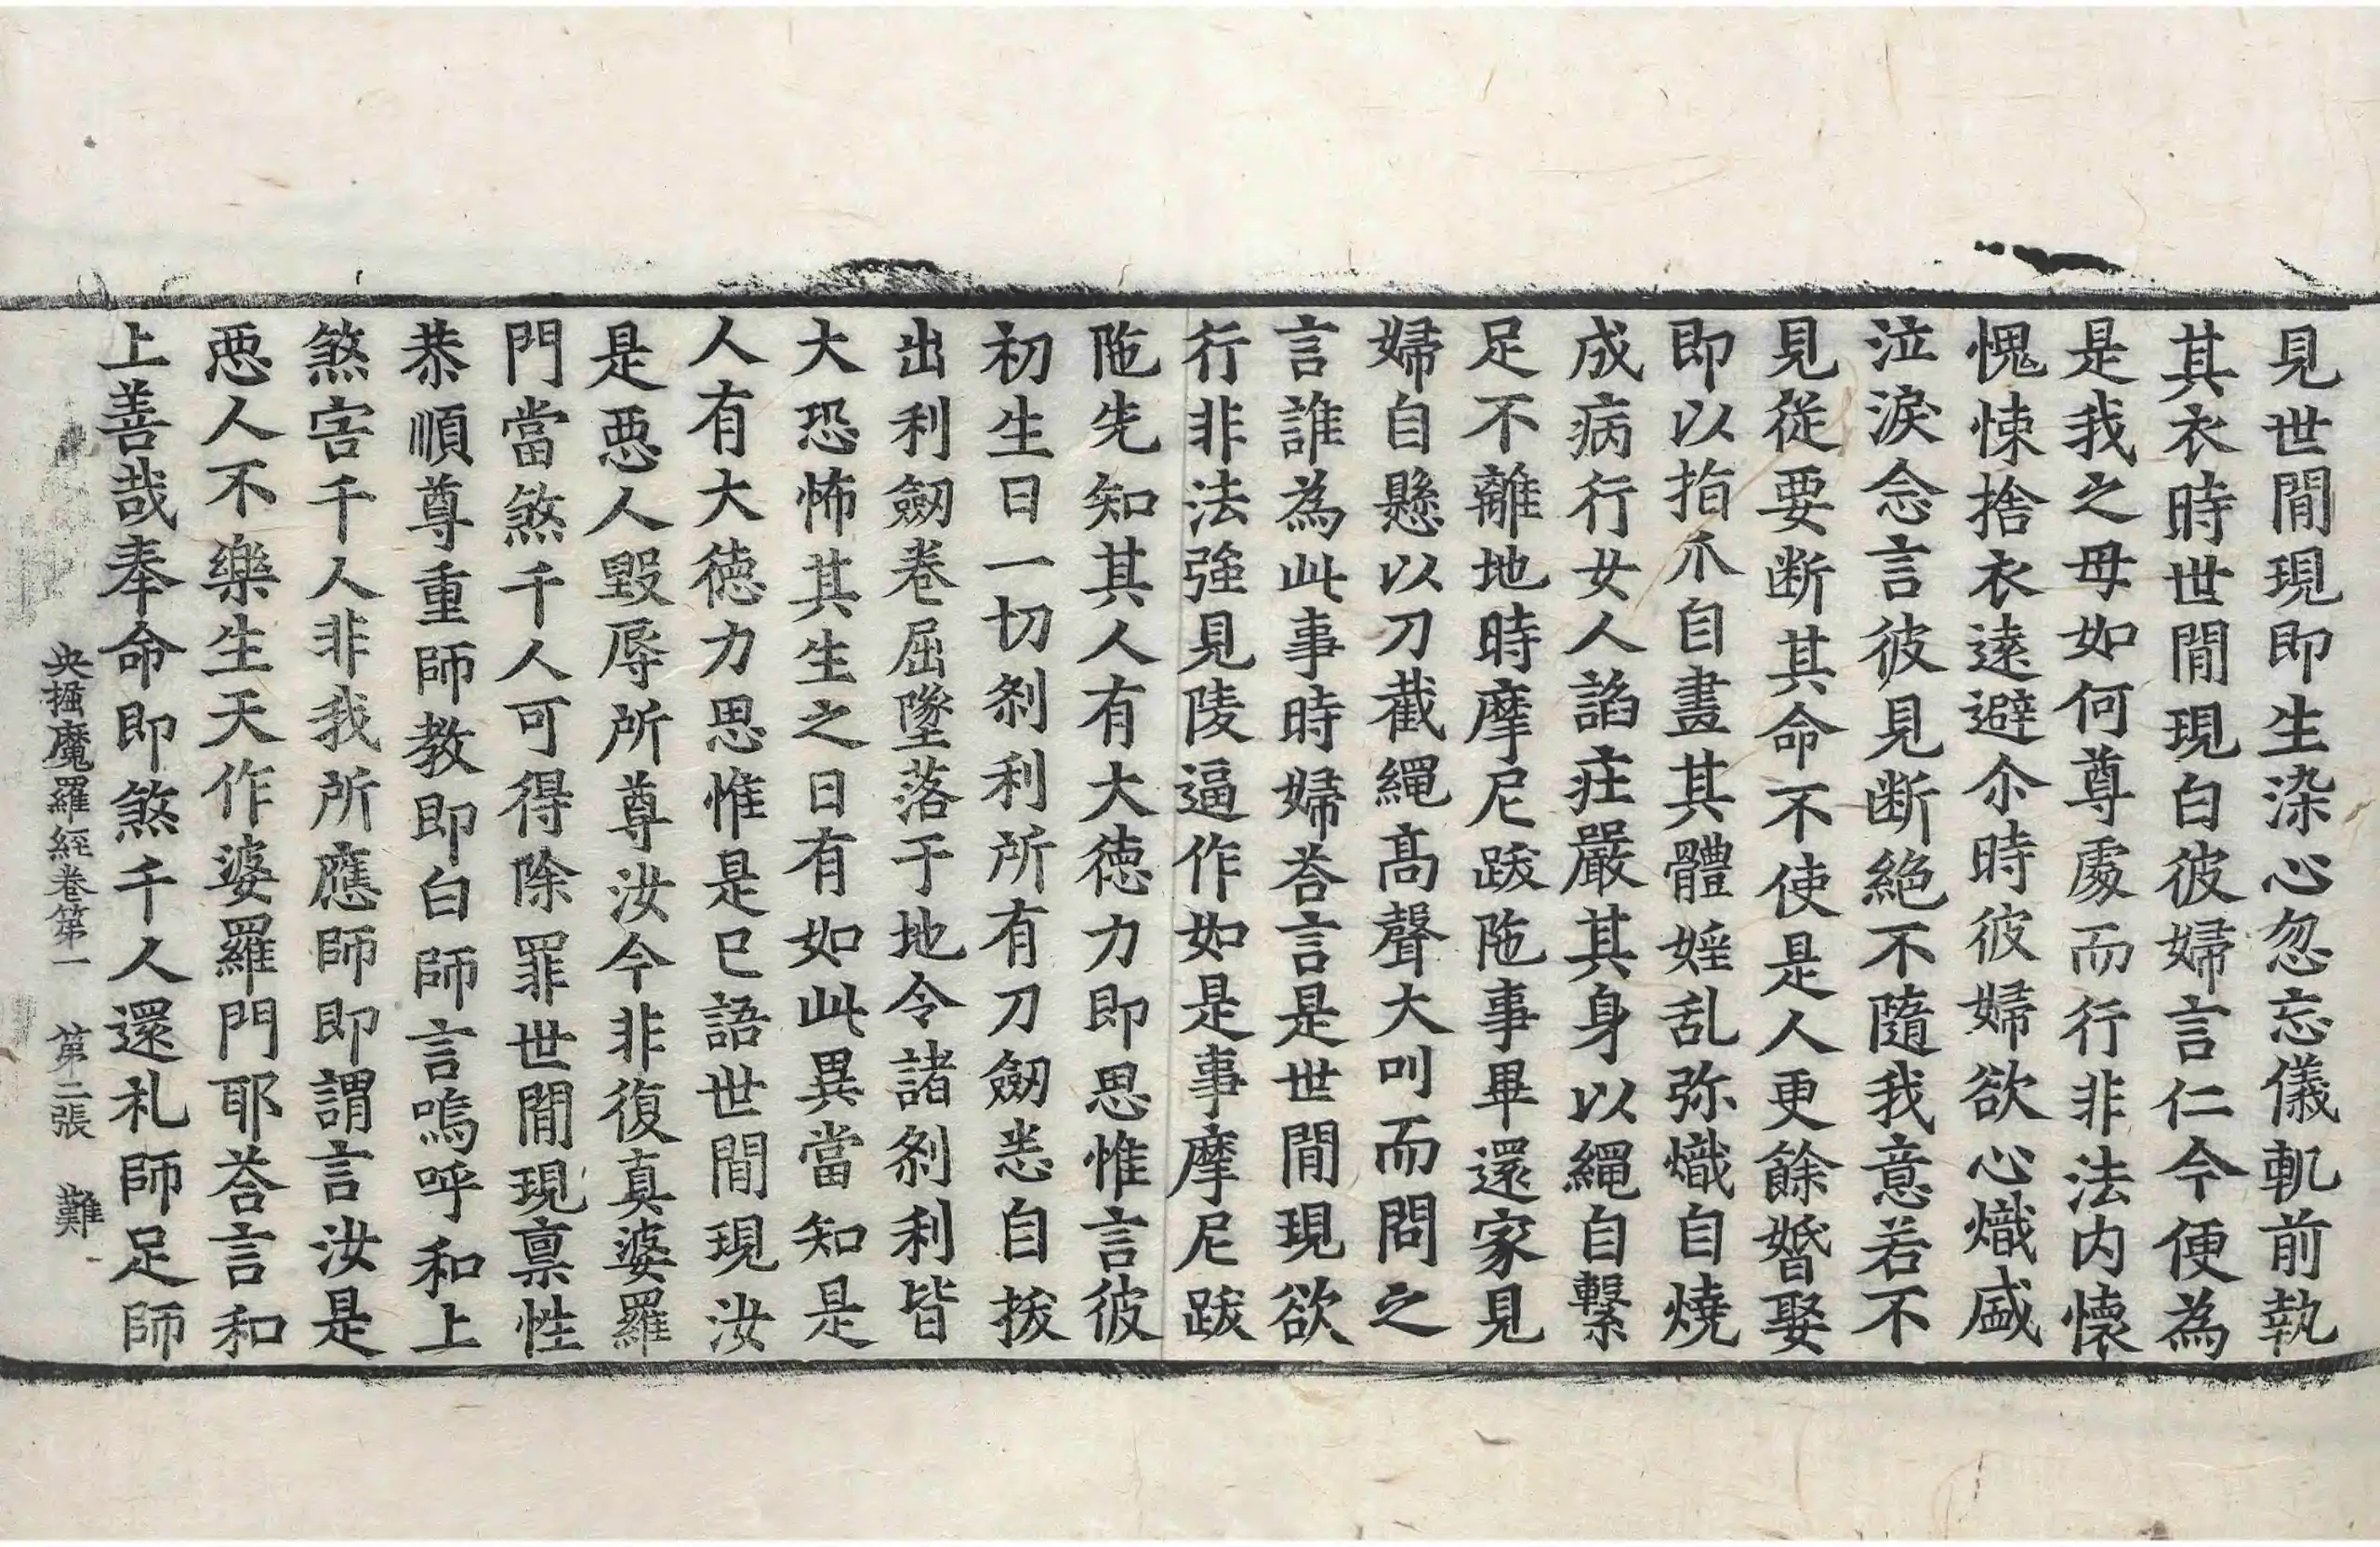 見世間現即生染心忽忘儀軌前執
其衣時世間現白彼婦言仁今便為
是我之母如何尊處而行非法内懷
愧悚捨衣遠避尒時彼婦欲心熾盛
泣淚念言彼見断絶不隨我意若不
見從要断其命不使是人更餘婚娶
即以指爪自畫其體婬乱弥熾自燒
成病行女人諂莊嚴其身以繩自繫
足不離地時摩尼跋陁事畢還家見
婦自懸以刀截繩髙聲大叫而問之
言誰為此事時婦荅言是世間現欲
行非法強見陵逼作如是事摩尼跋
陁先知其人有大徳力即思惟言彼
初生日一切刹利所有刀劒悉自拔
出利劒卷屈墜落于地令諸刹利皆
大恐怖其生之日有如此異當知是
人有大徳力思惟是已語世間現汝
是惡人毀辱所尊汝今非復真婆羅
門當煞千人可得除罪世間現禀性
恭順尊重師教即白師言嗚呼和上
煞害千人非我所應師即謂言汝是
惡人不樂生天作婆羅門耶荅言和
上善哉奉命即煞千人還礼師足師
央掘魔羅經卷第一　第二張　難